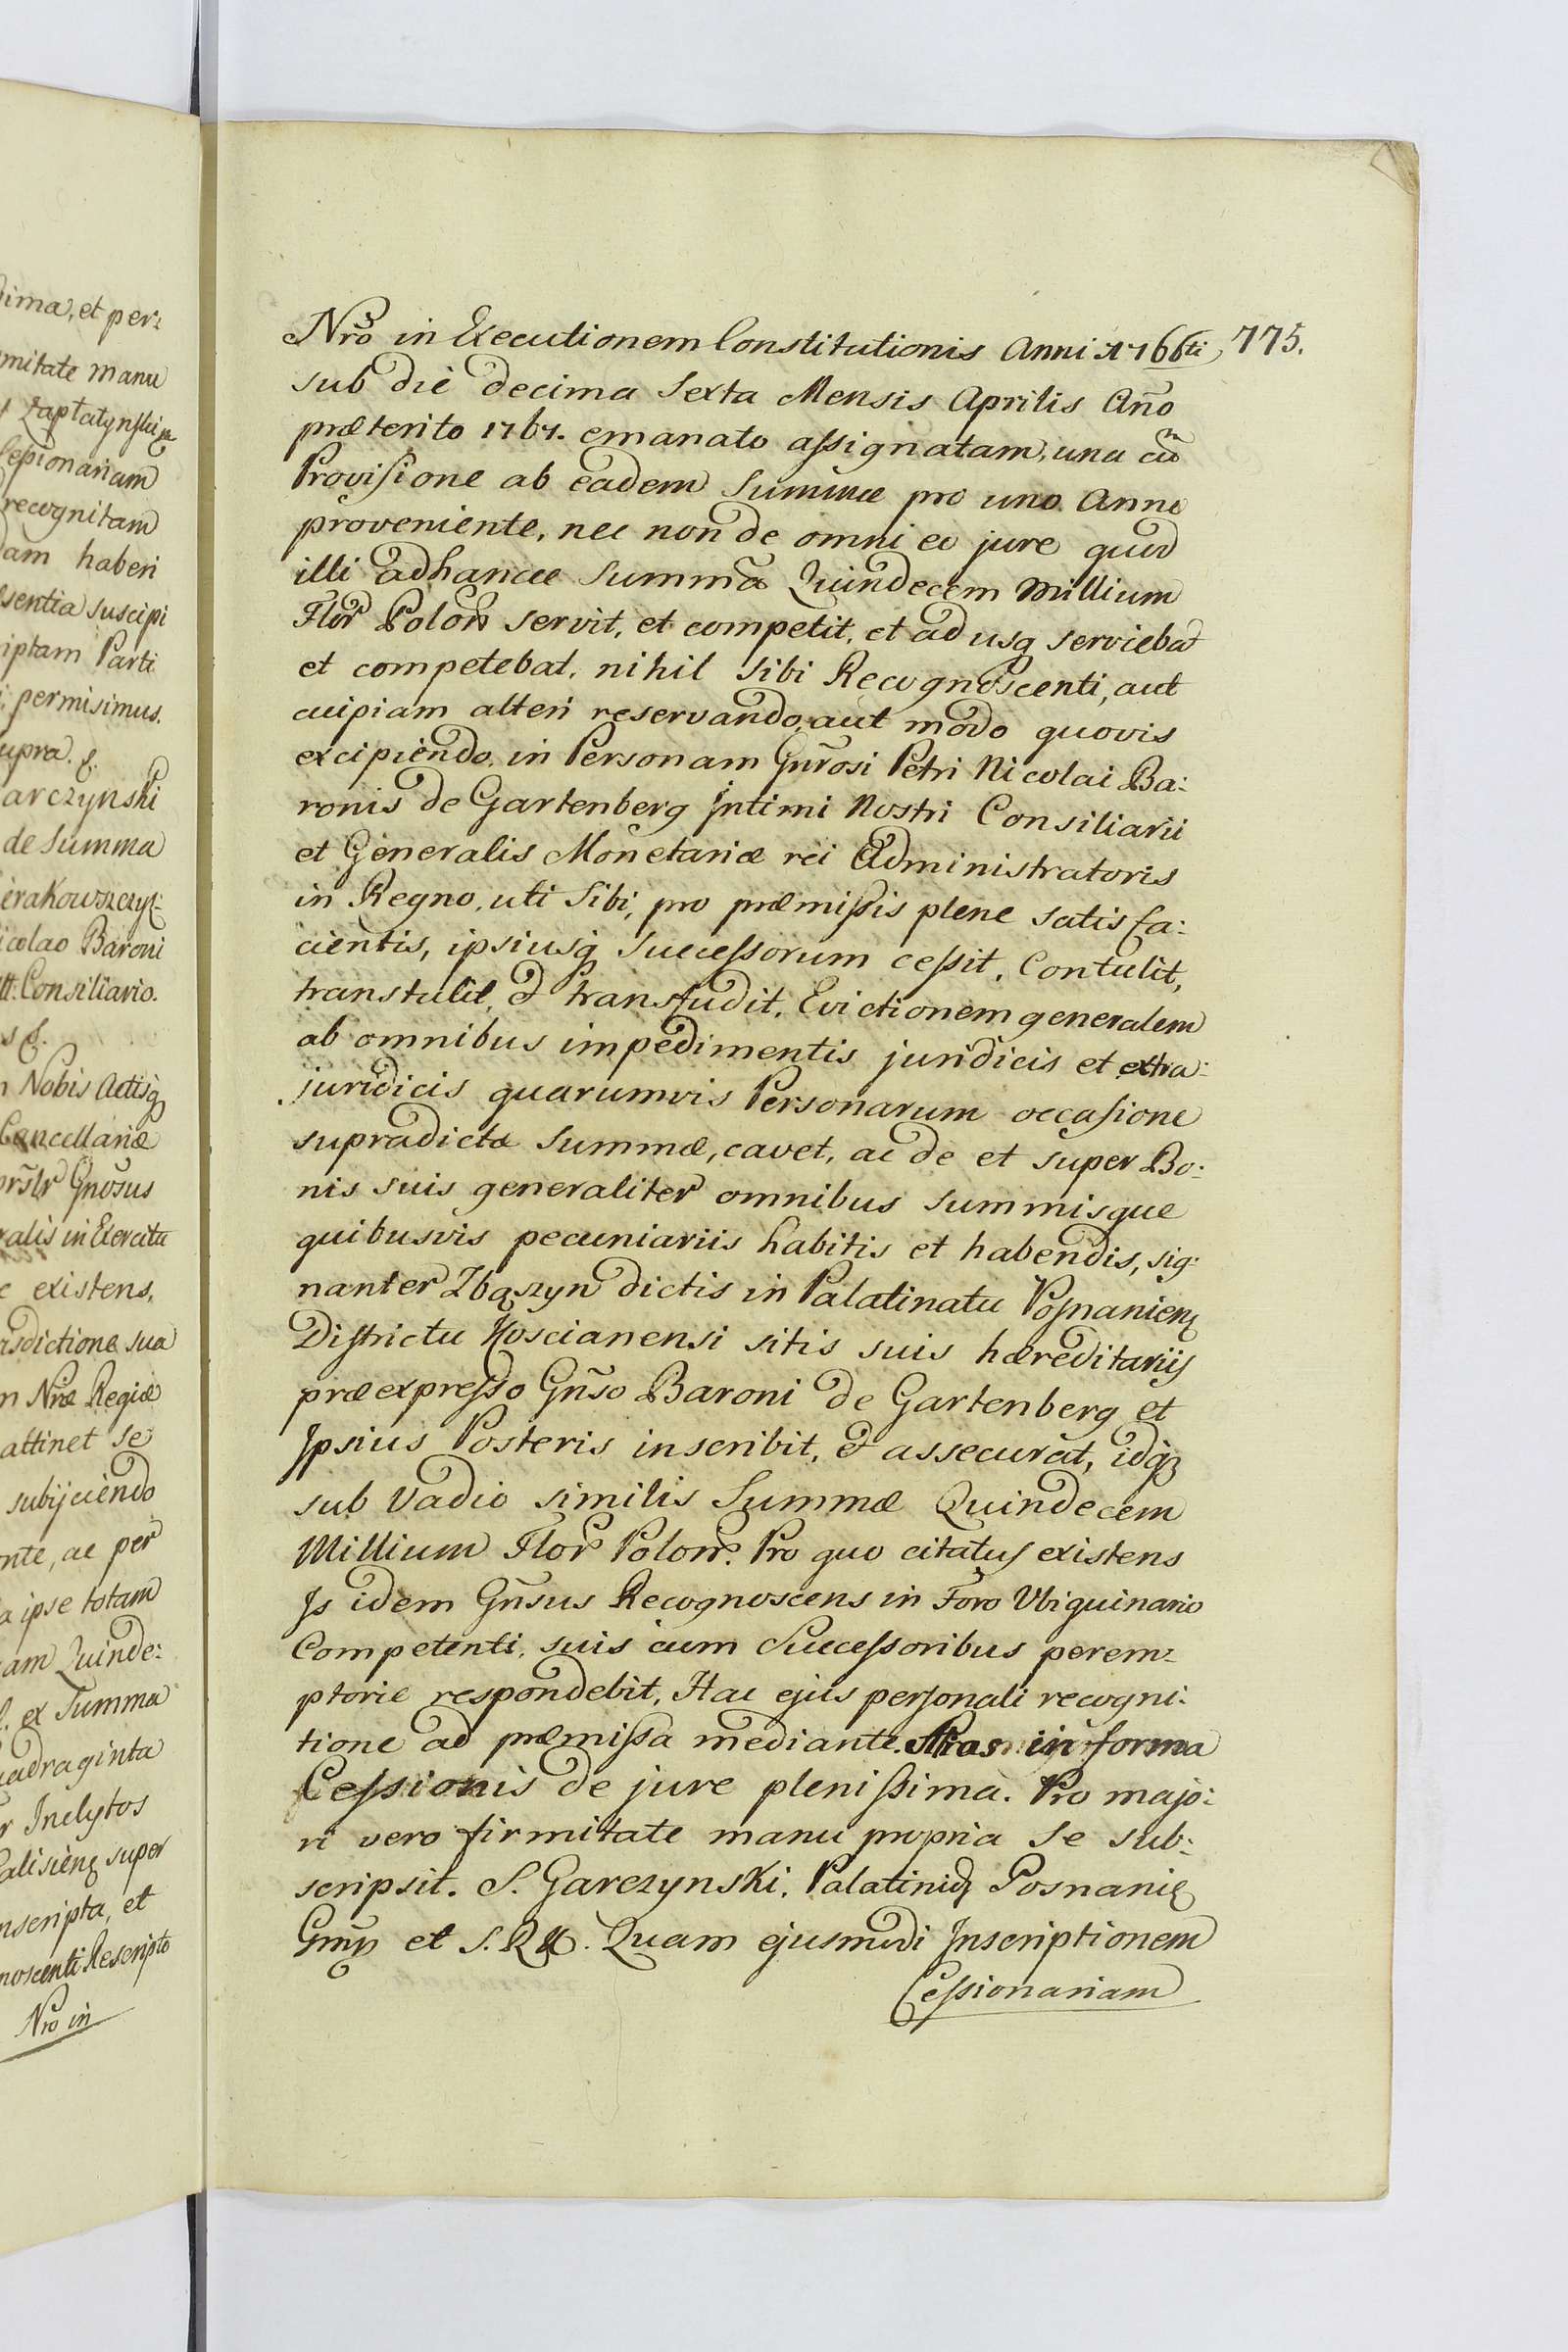 ima, et per:
mitate manu
Zaptatynski
Cessionariam
recognitam
dam haberi
sentia suscipi
iptam Parti
permisimus.
upra. &.
arczynski
de Summa
icolao Baroni
Consiliario.
Nobis Actisq
Cancellariæ
Gnosus
ralis in Exercitu
existens,
isdictione sua
Nræ Regiæ
attinet se
subijciendo
nte, ac per
a ipse totam
am Quinde:
ex Summa
uadraginta
Inclytos
alisienȩ super
nscripta, et
noscenti Rescripto
Nro in
775.
Nrõ in Executionem Constitutionis Anni 1766ti
sub die decima Sexta Mensis Aprilis Año
præterito 1767. emanato assignatam, una cũ
Provisione ab eadem Summa pro uno Anno
proveniente, nec non de omni eo jure quod
illi adhancce Summã Quindecem Millium
Flor Polon servit, et competit, et ad usq serviebat
et competebat, nihil sibi Recognoscenti, aut
cuipiam alteri reservando, aut modo quovis
excipiendo, in Personam Gnrosi Petri Nicolai Ba:
ronis de Gartenberg Intimi Nostri Consiliarii
et Generalis Monetariæ rei Administratoris
in Regno, uti Sibi, pro præmissis plene satisfa:
cientis, ipsiusq Successorum cessit, Contulit,
transtulit, & transfudit. Evictionem generalem
ab omnibus impedimentis juridicis et extra:
juridicis quarumvis Personarum occasione
supradictæ Summæ, cavet, ac de et super Bo:
nis suis generaliter omnibus summisque
quibusvis pecuniariis habitis et habendis, sig:
nanter Zbąszyn dictis in Palatinatu Posnanienȩ
Districtu Koscianensi sitis suis hæreditariis
præexpresso Gñso Baroni de Gartenberg et
Ipsius Posteris inscribit, & assecurat, idq
sub Vadio similis Summæ Quindecem
Millium Flor Polon. Pro quo citatus existens
Is idem Gñsus Recognoscens in Foro Ubiquinario
Competenti, suis cum Successoribus perem:
ptorie respondebit, Hac ejus personali recogni:
tione ad præmissa mediante. in forma
Cessionis de jure plenissima. Pro majo:
ri vero firmitate manu propria se sub:
scripsit. S. Garczynski, Palatinid Posnaniȩ
et S. R. Quam ejusmodi Inscriptionem
Cessionariam